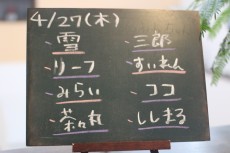 4/27(木)
雪
リーフ
みらい
茶々丸
三郎
すいれん
ココ
ししまる